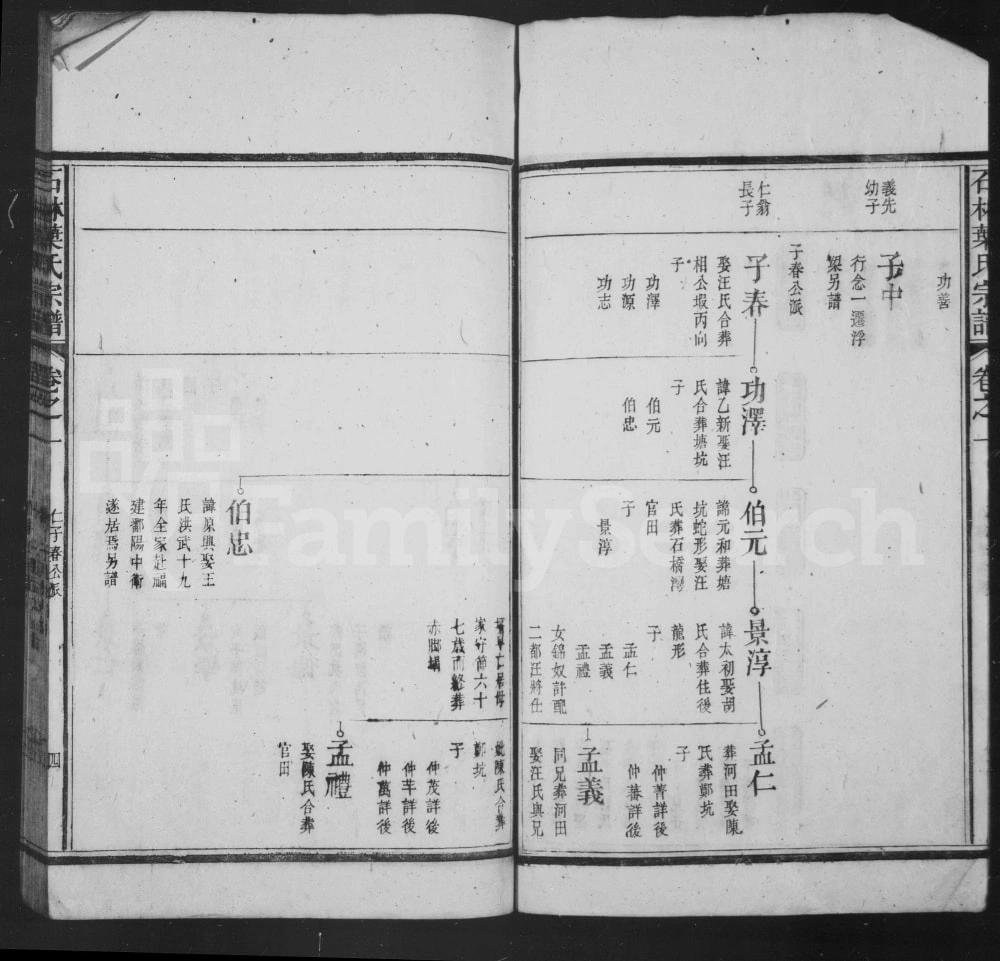 石林葉氏宗譜
卷之一
功善
義先
幼子
子中
行念一遷浮
梁另譜
子春公派
仁翁
長子
子春
娶汪氏合葬
相公塅丙向
子
功澤
功源
功志
功澤
諱乙新娶汪
氏合葬塘坑
子
伯元
伯忠
伯元
諱元和葬塘
坑蛇形娶汪
氏葬石橋灣
官田
子
景淳
景淳
諱太初娶胡
氏合葬住後
龍形
子
孟仁
孟義
孟禮
女錦奴許配
二都汪將仕
孟仁
葬河田娶陳
氏葬鄭坑
子
仲菁詳後
仲蕃詳後
孟義
同兄葬河田
娶汪氏與兄
家守節六十
七歲而終葬
赤腳塥
伯忠
諱原興娶王
氏洪武十九
年全家赴福
建都陽中衛
遂居焉另譜
妣陳氏合葬
鄭坑
子
仲茂詳後
仲芊詳後
仲萬詳後
孟禮
娶陳氏合葬
官田
石林葉氏宗譜
卷之一
仁子春公派
四
FamilySearch